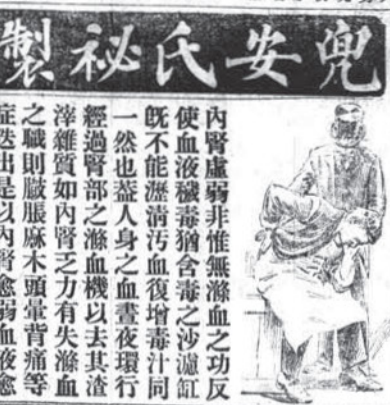 兜安氏祕製
內腎虛弱非惟無滌血之功反
使血液穢毒猶含毒之沙濾缸
旣不能瀝清污血復增毒汁同
一然也葢人身之血晝夜環行
經過腎部之滌血機以去其渣
滓雜質如內腎乏力有失滌血
之職則臌脹麻木頭暈背痛等
症迭出是以內腎愈弱血液愈